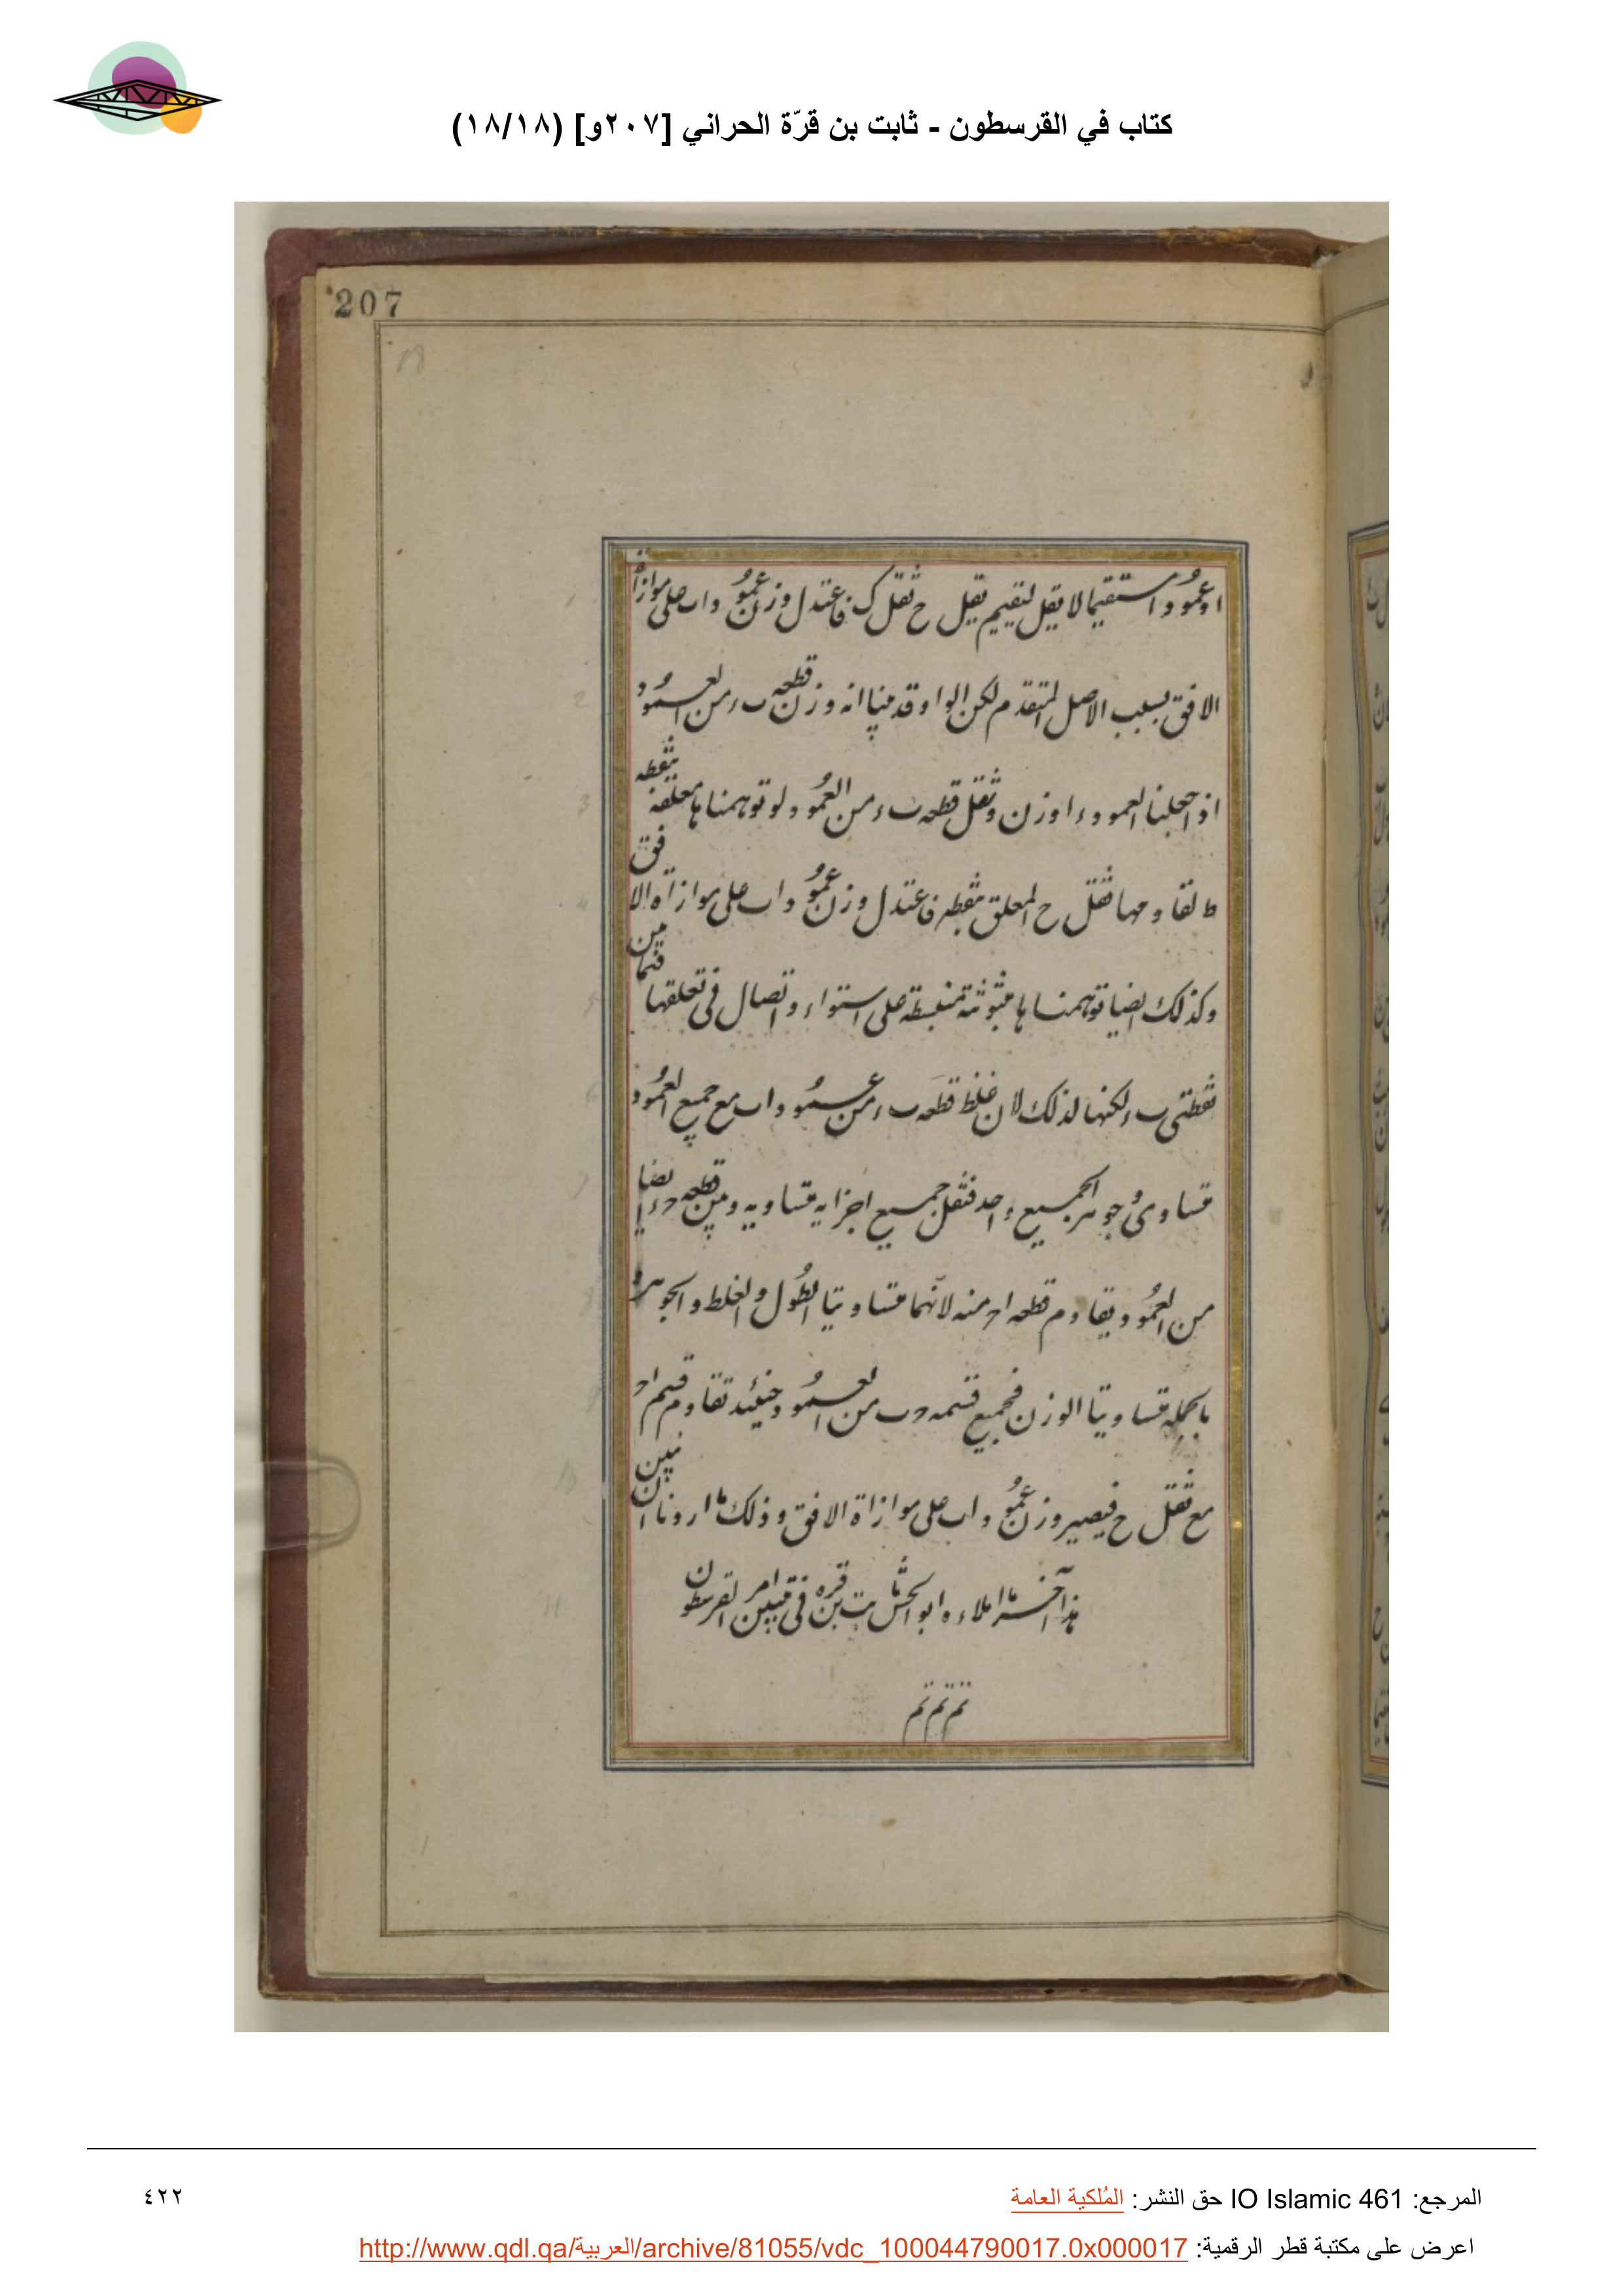 كتاب في القرسطون - ثابت بن قرّة الحراني [٢٠٧و] (١٨/١٨)
207
او عمودا مستقيما لا يقل لتقيم يقل ح ثقل ك فاعتدل وزن عمود واب على موازاة
الافق بسبب الاصل المتقدم لكن الواو قد منا انه وزن قطعه ب ء من العمود
اذ اجعلنا العمود ء ا وزن وثقل قطعه ب ء من العمود ولو توهمناها معلقة بنقطه
ط لقاومها ثقل ح المعلق بنقطه فاعتدل وزن عمود واب على موازاة الافق
وكذلك ايضا توهمناها مبثوثة منبسطة على استواء واتصال فى تعلقها فيما بين
نقطتى ب ء لكنها لذلك لان غلظ قطعه ب ء من عمود واب مع جميع العمود
متساوى وجوهر الجميع واحد فثقل جميع اجزايه متساويه وبين قطعه د ء ايضا
من العمود يقاوم قطعه ا د منه لانهما متساويتا الطول والغلظ والجوهر و
بالجمله متساويتا الوزن فجميع قسمه د ب من العمود حينئذ تقاوم قسم ا د
مع ثقل ح فيصير وزن عمود واب على موازاة الافق وذلك ما اردنا ان نبين
هذا آخر ما املاءه ابو الحسن ثابت بن قره فى تبيين امر القرسطون
تم تم تم
المرجع: IO Islamic 461 حق النشر: المُلكية العامة
٤٢٢
اعرض على مكتبة قطر الرقمية: http://www.qdl.qa/العربية/archive/81055/vdc_100044790017.0x000017